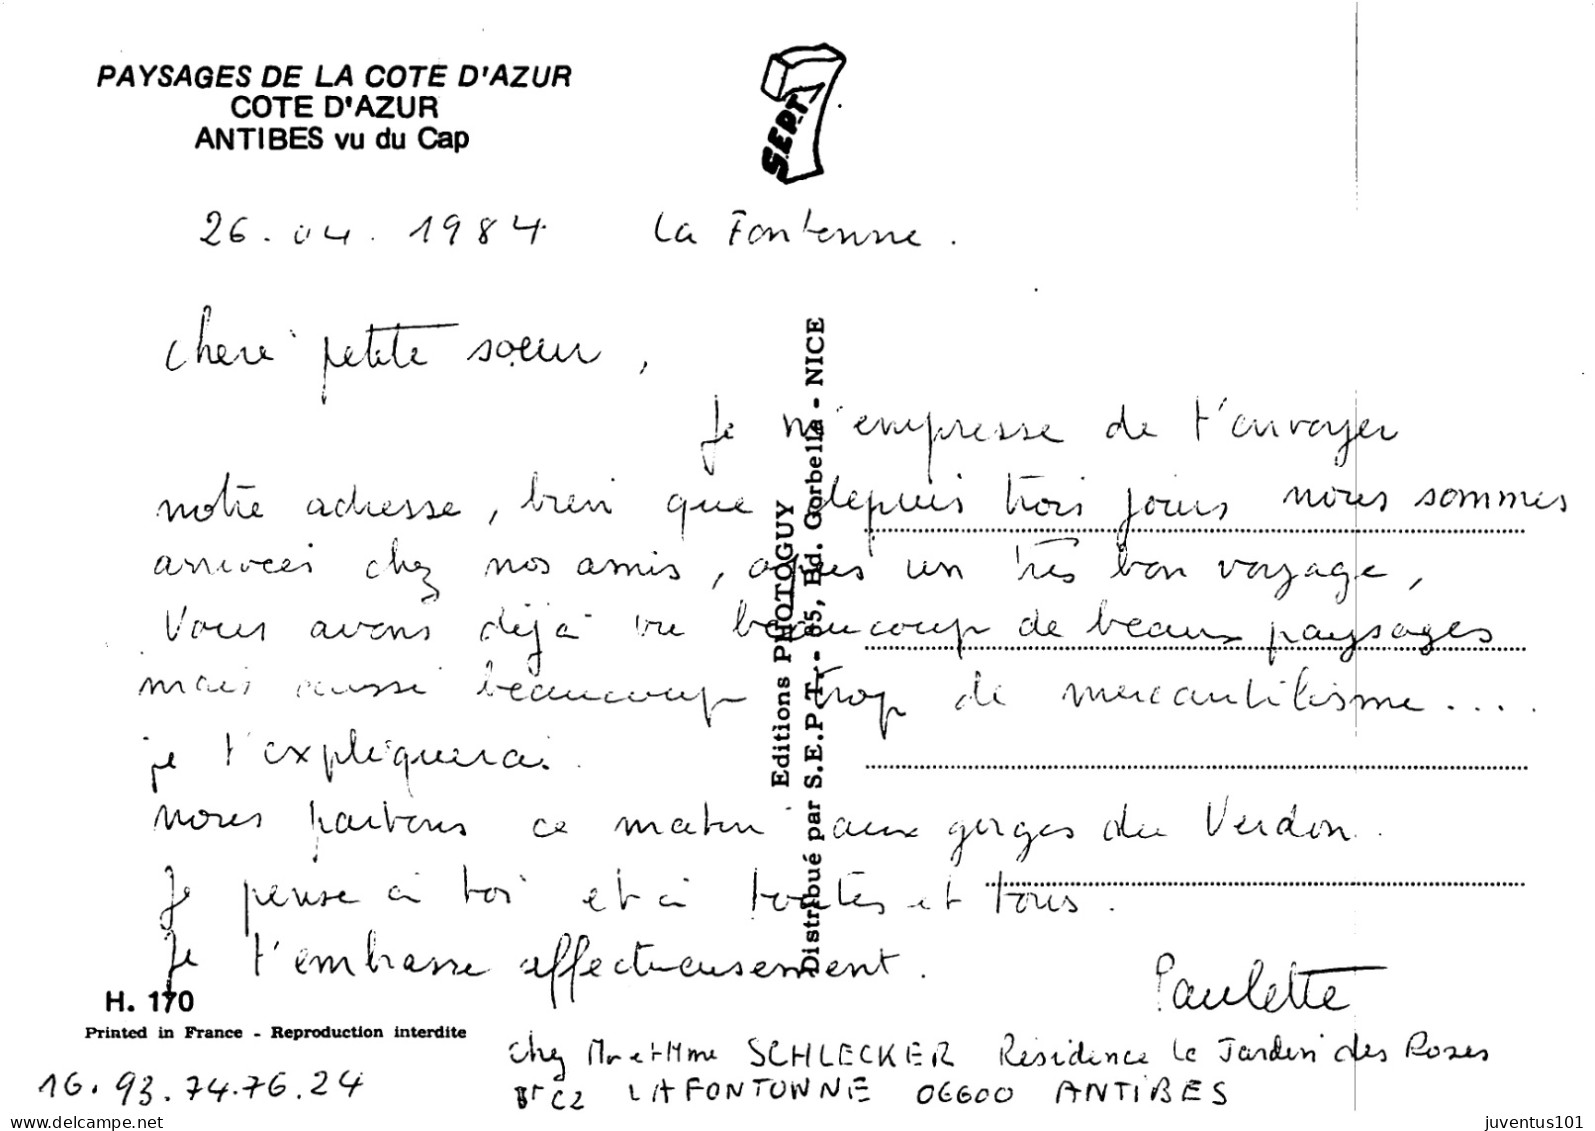 PAYSAGES DE LA COTE D'AZUR
COTE D'AZUR
ANTIBES vu du Cap
7 SEPT
26.04.1984 La Fontonne.
chère petite sœur,
Je m'empresse de t'envoyer
notre adresse, bien que depuis trois jours nous sommes
arrivées chez nos amis, après un très bon voyage,
Nous avons déjà vu beaucoup de beaux paysages
mais aussi beaucoup trop de mercantilisme....
je t'expliquerai.
nous partons ce matin aux gorges du Verdon.
Je pense à toi et à toutes et tous.
Je t'embrasse affectueusement.
Paulette
Editions PHOTOGUY
Distribué par S.E.P.T. - 85, Bd. Gorbella - NICE
H. 170
Printed in France - Reproduction interdite
chez Mr et Mme SCHLECKER Résidence le Jardin des Roses
Bt C2 LA FONTONNE 06600 ANTIBES
16.93.74.76.24
delcampe.net
juventus101